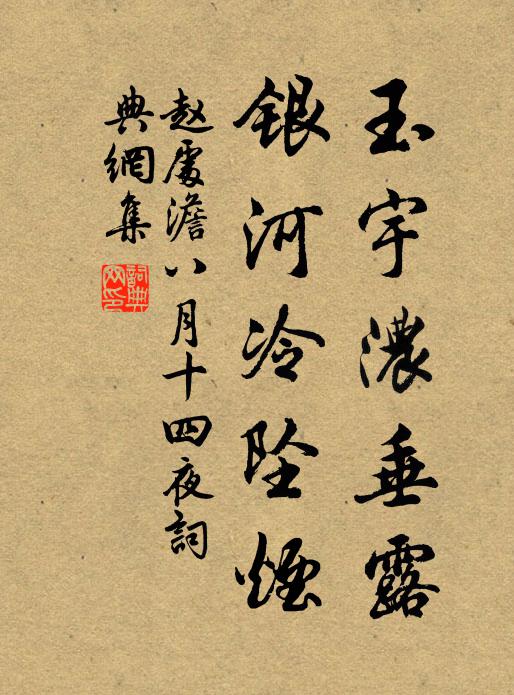 玉宇濃垂露
銀河冷墜煙
赵處澹八月十四夜詞
典網集
詞典网印